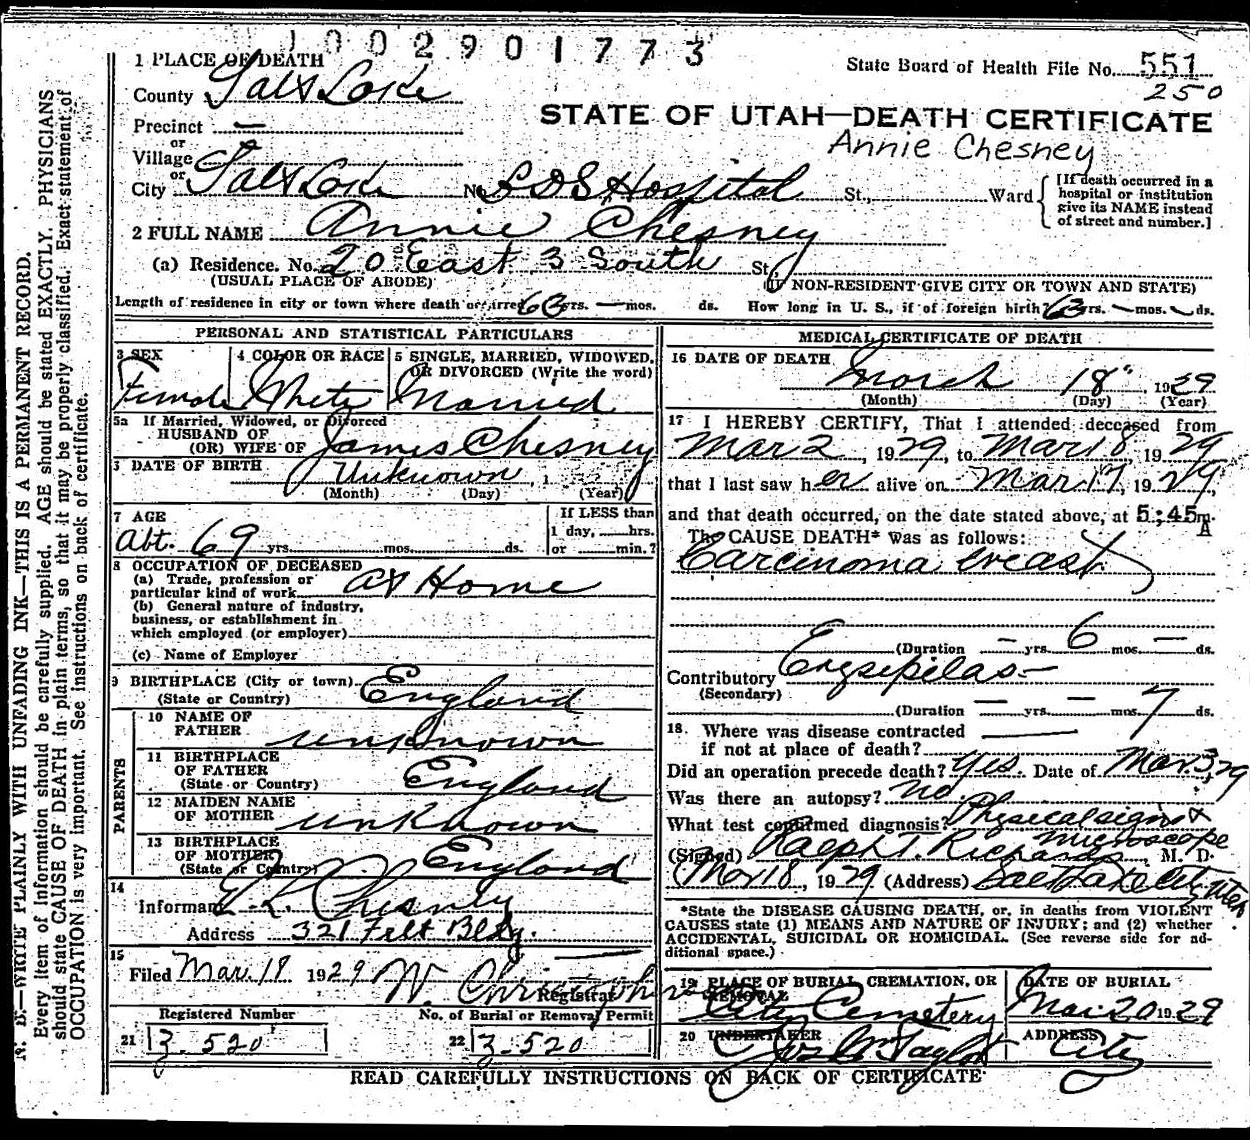 1002901773
1 PLACE OF DEATH
State Board of Health File No. 551
250
County Salt Lake
STATE OF UTAH—DEATH CERTIFICATE
Precinct —
or
Annie Chesney
Village
or
City Salt Lake No. LDS Hospital St., Ward
[If death occurred in a hospital or institution give its NAME instead of street and number.]
2 FULL NAME Annie Chesney
(a) Residence. No. 20 East 3 South St.
(USUAL PLACE OF ABODE)
(IF NON-RESIDENT GIVE CITY OR TOWN AND STATE)
Length of residence in city or town where death occurred 63 yrs. — mos. ds. How long in U. S., if of foreign birth? 63 yrs. — mos. — ds.
PERSONAL AND STATISTICAL PARTICULARS
3 SEX
Female
4 COLOR OR RACE
White
5 SINGLE, MARRIED, WIDOWED, OR DIVORCED (Write the word)
Married
5a If Married, Widowed, or Divorced
HUSBAND OF
(OR) WIFE OF James Chesney
DATE OF BIRTH Unknown, 1
(Month) (Day) (Year)
7 AGE
Abt. 69 yrs. mos. ds.
If LESS than
1 day, hrs.
or min.?
8 OCCUPATION OF DECEASED
(a) Trade, profession or
particular kind of work at Home
(b) General nature of industry,
business, or establishment in
which employed (or employer)
(c) Name of Employer
9 BIRTHPLACE (City or town) England
(State or Country)
PARENTS
10 NAME OF
FATHER unknown
11 BIRTHPLACE
OF FATHER England
(State or Country)
12 MAIDEN NAME
OF MOTHER unknown
13 BIRTHPLACE
OF MOTHER England
(State or Country)
14
Informant Chesney
Address 321 Felt Bldg.
15
Filed Mar. 18 1929 W. Christopherson
Registrar
Registered Number
No. of Burial or Removal Permit
21 3.520
22 3.520
MEDICAL CERTIFICATE OF DEATH
16 DATE OF DEATH
March 18" 1929
(Month) (Day) (Year)
17 I HEREBY CERTIFY, That I attended deceased from
Mar 2, 1929, to Mar 18, 1929
that I last saw her alive on Mar 17, 1929,
and that death occurred, on the date stated above, at 5:45 m.
A
The CAUSE DEATH* Was as follows:
Carcinoma breast
(Duration — yrs. 6 mos. — ds.
Contributory Erysipilas—
(Secondary)
(Duration — yrs. — mos. 7 ds.
18. Where was disease contracted
if not at place of death?
Did an operation precede death? Yes. Date of Mar. 3, 29
Was there an autopsy? No
What test confirmed diagnosis? Physical signs &
microscope
(Signed) Ralph T. Richards, M. D.
Mar 18, 1929 (Address) Salt Lake City, Utah
*State the DISEASE CAUSING DEATH, or, in deaths from VIOLENT
CAUSES state (1) MEANS AND NATURE OF INJURY; and (2) whether
ACCIDENTAL, SUICIDAL OR HOMICIDAL. (See reverse side for ad-
ditional space.)
19 PLACE OF BURIAL, CREMATION, OR
REMOVAL
City Cemetery
DATE OF BURIAL
Mar. 20 1929
20 UNDERTAKER
Jos. Wm Taylor
ADDRESS
City
READ CAREFULLY INSTRUCTIONS ON BACK OF CERTIFICATE
N. B.—WRITE PLAINLY WITH UNFADING INK—THIS IS A PERMANENT RECORD.
Every item of information should be carefully supplied. AGE should be stated EXACTLY. PHYSICIANS
should state CAUSE OF DEATH in plain terms, so that it may be properly classified. Exact statement of
OCCUPATION is very important. See instructions on back of certificate.